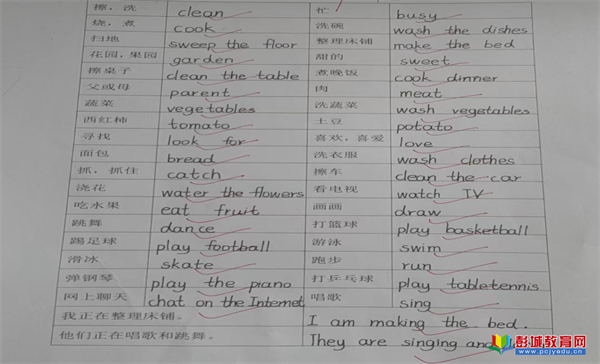 擦，洗 clean 忙 busy
烧，煮 cook 洗碗 wash the dishes
扫地 sweep the floor 整理床铺 make the bed
花园，果园 garden 甜的 sweet
擦桌子 clean the table 煮晚饭 cook dinner
父或母 parent 肉 meat
蔬菜 vegetables 洗蔬菜 wash vegetables
西红柿 tomato 土豆 potato
寻找 look for 喜欢，喜爱 love
面包 bread 洗衣服 wash clothes
抓，抓住 catch 擦车 clean the car
浇花 water the flowers 看电视 watch TV
吃水果 eat fruit 画画 draw
跳舞 dance 打篮球 play basketball
踢足球 play football 游泳 swim
滑冰 skate 跑步 run
弹钢琴 play the piano 打乒乓球 play tabletennis
网上聊天 chat on the Internet 唱歌 sing
我正在整理床铺。 I am making the bed.
他们正在唱歌和跳舞。 They are singing and
彭城教育网
www.pcjyedu.cn